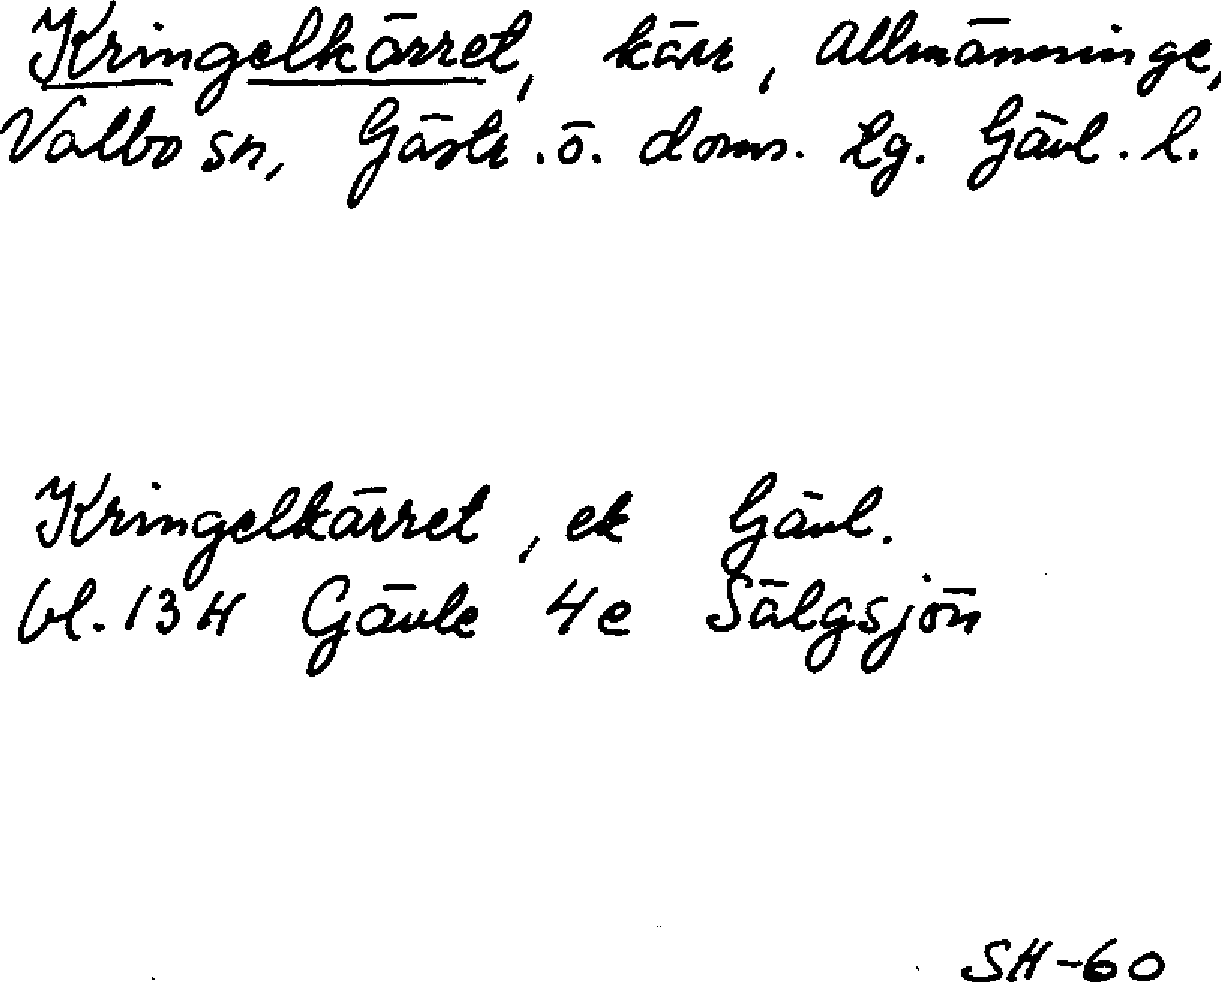 Kringelkärret, kärr, Allmänninge,
Valbo sn, Gästr. ö. doms. tg. Gävl. l.
Kringelkärret, ek Gävl.
bl. 13 H Gävle 4e Sälgsjön
SH-60